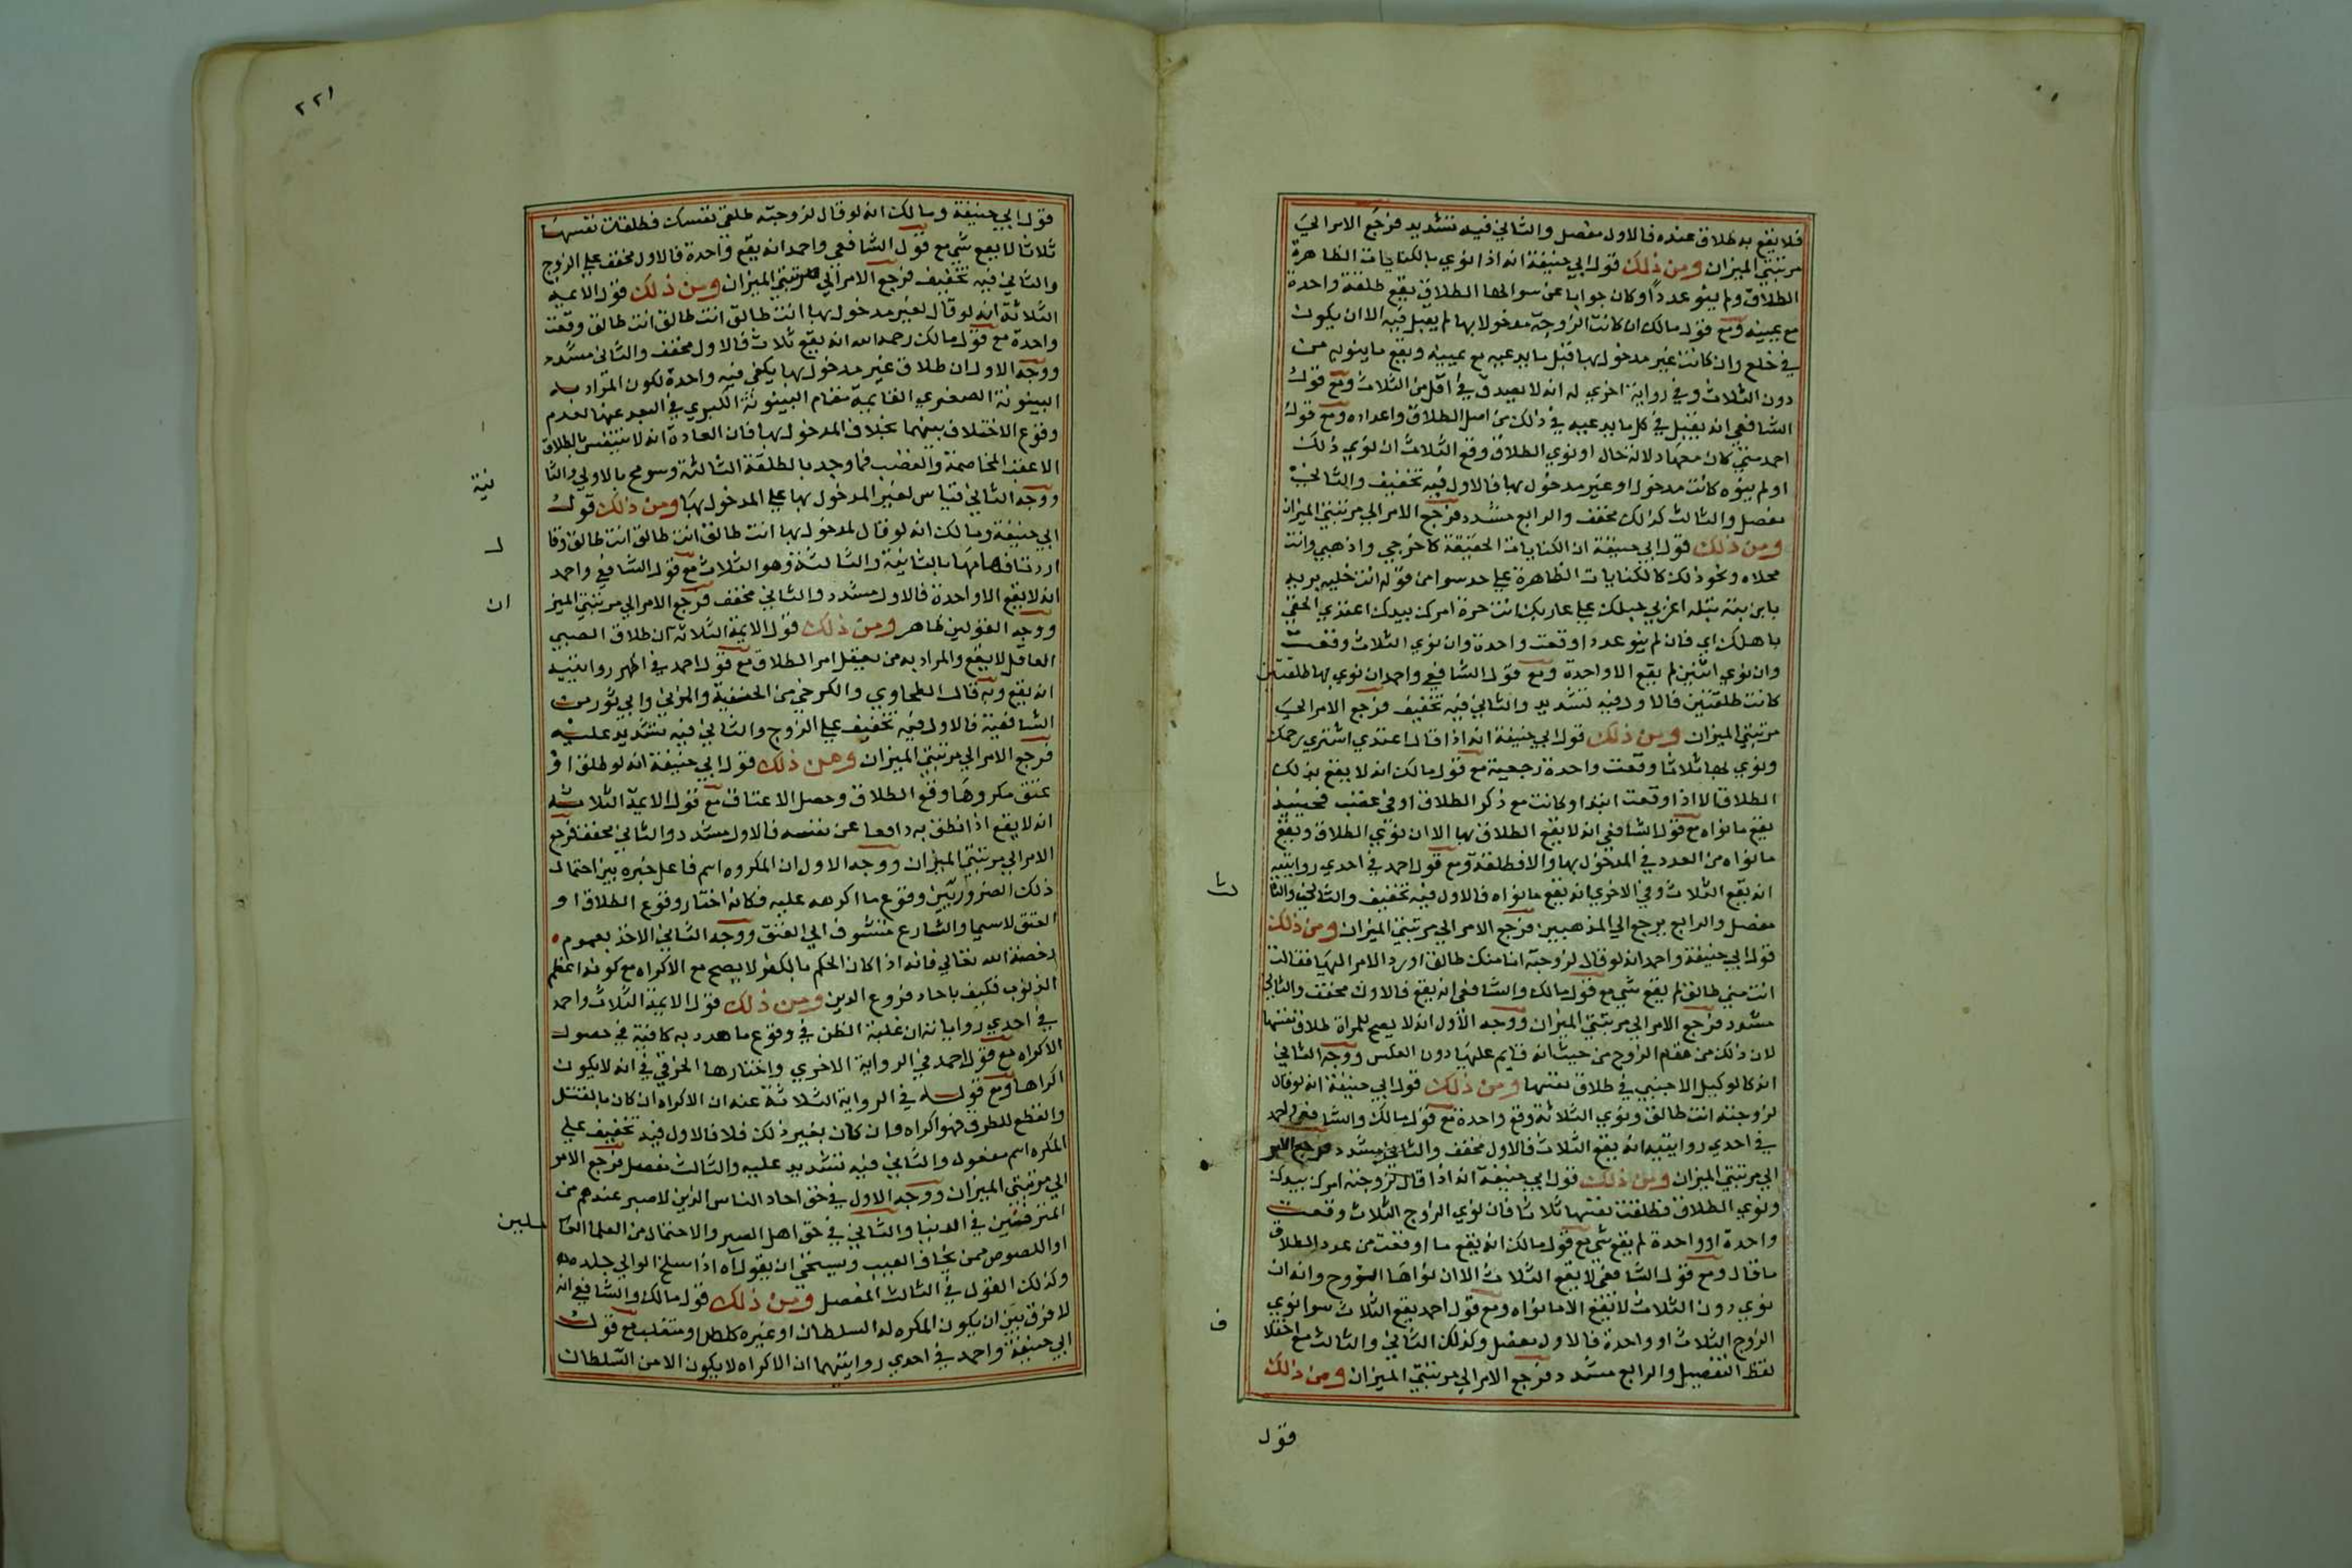 فلا يقع به طلاق عنده فالاول مفصل والثاني فيه تشديد فرجع الامر الي
مرتبتي الميزان ومن ذلك قول ابي حنيفة انه اذا نوي بالكنايات الظاهرة
الطلاق ولم ينو عدداً وكان جوابا عن سوالها الطلاق يقع طلقة واحدة
مع يمينه ومع قول مالك ان كانت الزوجة مدخولا بها لم يقبل منه الا ان يكون
في خلع وان كانت غير مدخول بها قبل ما يدعيه مع يمينه ويقع ما ينويه من
دون الثلاث وفي رواية اخري له انه لا يصدق في اقل من الثلاث ومع قول
الشافعي انه يقبل في كل ما يدعيه في ذلك من اصل الطلاق واعداده ومع قول
احمد متي كان معها دلالة حال او نوي الطلاق وقع الثلاث ان نوي ذلك
او لم ينوه كانت مدخولا او غير مدخول بها فالاول فيه تخفيف والثاني
مفصل والثالث كذلك مخفف والرابع مشدد فرجع الامر الي مرتبتي الميزان
ومن ذلك قول ابي حنيفة ان الكنايات الخفيفة كاخرجي واذهبي وانت
مخلاه ونحو ذلك كالكنايات الظاهرة علي حد سوا من قوله انت خليه بريه
باين بتة بتله اعزبي حبلك علي غاربك انت حرة امرك بيدك اعتدي الحقي
باهلك اي فان لم ينو عددا وقعت واحدة وان نوي الثلاث وقعت
وان نوي اثنين لم يقع الا واحدة ومع قول الشافعي واحمد ان نوي بها طلقتين
كانت طلقتين فالاول فيه تشديد والثاني فيه تخفيف فرجع الامر الي
مرتبتي الميزان ومن ذلك قول ابي حنيفة انه اذا قال اعتدي استبري رحمك
ونوي بها ثلاثا وقعت واحدة رجعية مع قول مالك انه لا يقع بذلك
الطلاق الا اذا وقعت ابتدا وكانت مع ذكر الطلاق او في غضب فحينيذ
يقع ما نواه مع قول الشافعي انه لا يقع الطلاق بها الا ان نوي الطلاق ويقع
ما نواه من العدد في المدخول بها والا فطلقة ومع قول احمد في احدي روايتيه
انه يقع الثلاث وفي الاخري انه يقع ما نواه فالاول فيه تخفيف والثاني والثا
لث
مفصل والرابع يرجع الي المذهبين فرجع الامر الي مرتبتي الميزان ومن ذلك
قول ابي حنيفة واحمد انه لو قال لزوجته انا منك طالق او رد الامر اليها فقالت
انت مني طالق لم يقع شي مع قول مالك والشافعي انه يقع فالاول مخفف والثاني
مشدد فرجع الامر الي مرتبتي الميزان ووجه الاول انه لا يصح للمراة طلاق نفسها
لان ذلك من مقام الزوج من حيث انه قايم عليها دون العكس ووجه الثاني
انه كالوكيل الاجنبي في طلاق نفسها ومن ذلك قول ابي حنيفة انه لو قال
لزوجته انت طالق ونوي الثلاثة وقع واحدة مع قول مالك والشافعي واحمد
في احدي روايتيه انه يقع الثلاث فالاول مخفف والثاني مشدد فرجع الامر
الي مرتبتي الميزان ومن ذلك قول ابي حنيفة انه اذا قال لزوجته امرك بيدك
ونوي الطلاق فطلقت نفسها ثلاثا فان نوي الزوج الثلاث وقعت
واحدة او واحدة لم يقع شي مع قول مالك انه يقع ما اوقعت من عدد الطلاق
ما قال ومع قول الشافعي لا يقع الثلاث الا ان نواها الزوج وانه ان
نوي دون الثلاث لا يقع الا ما نواه ومع قول احمد يقع الثلاث سوا نوي
الزوج الثلاث او واحدة فالاول مفصل وكذلك الثاني والثالث مع اختلا
ف
لفظ التفصيل والرابع مشدد فرجع الامر الي مرتبتي الميزان ومن ذلك
قول
٢٢١
قول ابي حنيفة ومالك انه لو قال لزوجته طلقي نفسك فطلقت نفسها
ثلاثا لا يقع شي مع قول الشافعي واحمد انه يقع واحدة فالاول مخفف علي الزوج
والثاني فيه تخفيف فرجع الامر الي مرتبتي الميزان ومن ذلك قول الايمه
الثلاثة انه لو قال لغير مدخول بها انت طالق انت طالق انت طالق وقعت
واحدة مع قول مالك رحمه الله انه يقع ثلاث فالاول مخفف والثاني مشدد
ووجه الاول ان طلاق غير مدخول بها يكفي فيه واحدة لكون المراد به
البينونة الصغري القايمة مقام البينونة الكبري في البعد عنها لعدم
وقوع الاختلاف بينهما بخلاف المدخول بها فان العادة انه لا تتنفس الطلاق
الا عقد المخاصمة والغضب فما وجد بالطلقة الثالثة وسومح بالاولي والثا
نية
ووجه الثاني قياس لغير المدخول بها علي المدخول بها ومن ذلك قول
ابي حنيفة ومالك انه لو قال لمدخول بها انت طالق انت طالق انت طالق وقا
ل
اردت افهامها بالثانية والثالثة وهو الثلاث مع قول الشافعي واحمد
انه لا يقع الا واحدة فالاول مشدد والثاني مخفف فرجع الامر الي مرتبتي الميز
ان
ووجه القولين ظاهر ومن ذلك قول الايمة الثلاثه ان طلاق الصبي
العاقل لا يقع والمراد به من يعقل امر الطلاق مع قول احمد في اظهر روايتيه
انه يقع وبه قال الطحاوي والكرخي من الحنفية والمزني وابي ثور من
الشافعية فالاول فيه تخفيف علي الزوج والثاني فيه تشديد عليه
فرجع الامر الي مرتبتي الميزان ومن ذلك قول ابي حنيفة انه لو طلق او
عتق مكروها وقع الطلاق وحصل الاعتاق مع قول الايمة الثلاثه
انه لا يقع اذا نطق به دافعا عن نفسه فالاول مشدد والثاني مخفف فرجع
الامر الي مرتبتي الميزان ووجه الاول ان المكروه اسم فاعل خيره بين احتمال
ذلك الضرر وبين وقوع ما اكرهه عليه فكانه اختار وقوع الطلاق او
العتق لاسيما والشارع متشوف الي العتق ووجه الثاني الاخذ بعموم
رخصة الله تعالي فانه اذا كان الحكم بالكفر لا يصح مع الاكراه مع كونه اعظم
الذنوب فكيف باحاد فروع الدين ومن ذلك قول الايمة الثلاث واحمد
في احدي رواياته ان غلبة الظن في وقوع ما هدد به كافية في حصول
الاكراه مع قول احمد في الرواية الاخري واختارها الخرقي في انه لا يكون
اكراها ومع قوله في الرواية الثلاثة عنه ان الاكراه ان كان بالقتل
والقطع للطرف فهو اكراه وان كان بغير ذلك فلا فالاول فيه تخفيف علي
المكره اسم مفعول والثاني فيه تشديد عليه والثالث مفصل فرجع الامر
الي مرتبتي الميزان ووجه الاول في حق احاد الناس الذين لا صبر عندهم من
المترفهين في الدنيا والثاني في حق اهل الصبر والاحتمال من العلما العا
ملين
او اللصوص ممن يخاف العيب ويستحي ان يقول اه اذا سلخ الوالي جلده
وكذلك القول في الثالث المفصل ومن ذلك قول مالك والشافعي انه
لا فرق بين ان يكون المكره له السلطان او غيره كلص او متغلب مع قول
ابي حنيفة واحمد في احدي روايتيهما ان الاكراه لا يكون الا من السلطان